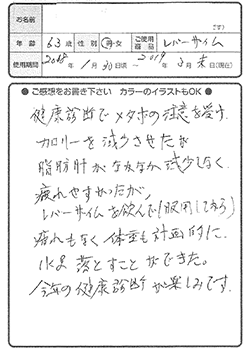 お名前
年齢 63才 性別 男・女 ご使用商品 レバーサイム
使用期間 2018年1月30日頃～2019年3月末日(現在)
●ご感想をお書き下さい カラーのイラストもOK●
健康診断でメタボの注意を受け
カロリーを減少させたが
脂肪肝がなかなか減少しなく、
疲れやすかったが、
レバーサイムを飲んで(服用してから)
疲れもなく体重も計画的に
落とすことができた。
今年の健康診断が楽しみです。